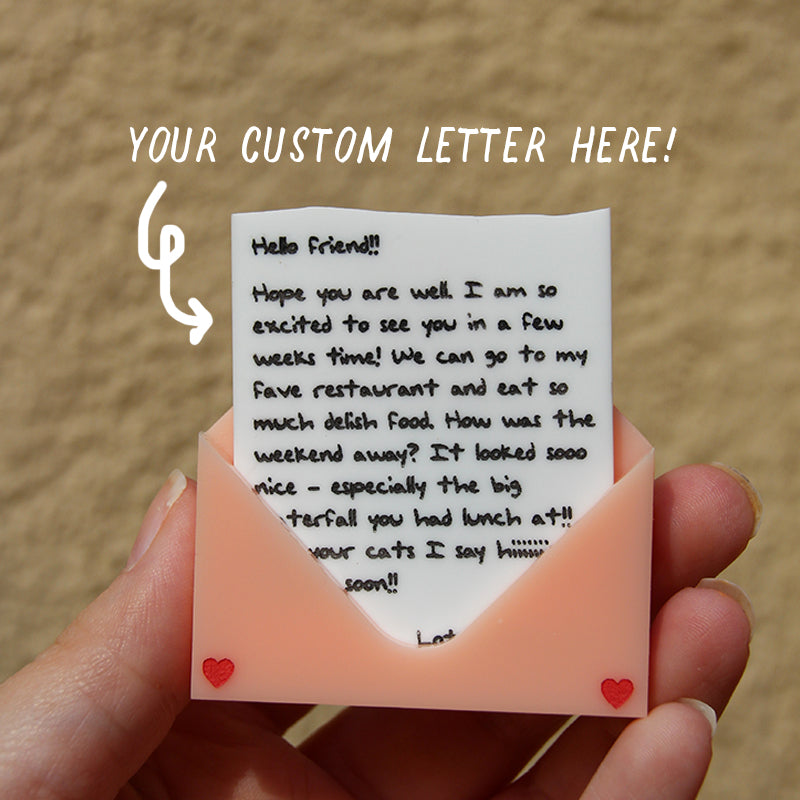 YOUR CUSTOM LETTER HERE!
Hello friend!!
Hope you are well. I am so
excited to see you in a few
weeks time! We can go to my
fave restaurant and eat so
much delish food. How was the
weekend away? It looked sooo
nice – especially the big
terfall you had lunch at!!
your cats I say hiiiiiii
soon!!
Lot